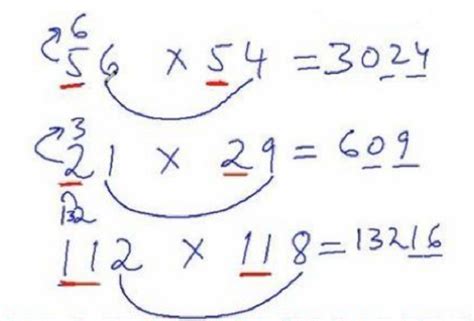 6
56 × 54 = 3024
3
21 × 29 = 609
132
112 × 118 = 13216